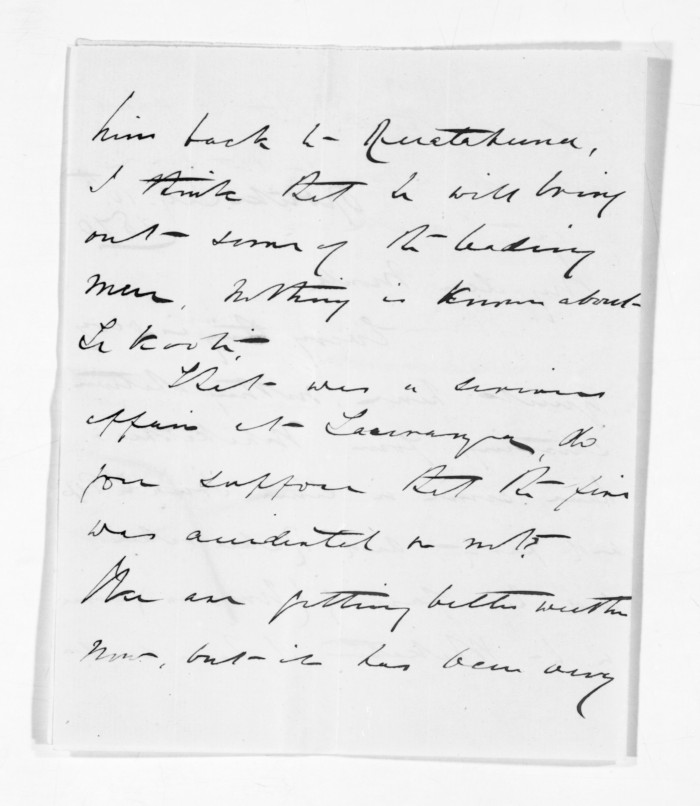 him back to Ruatahuna,
I think that he will bring
out some of the leading
men, nothing is known about
Te Kooti,
That was a serious
affair at Tauranga, do
you suppose that the fire
was accidental or not?
We are getting better weather
now, but it has been very